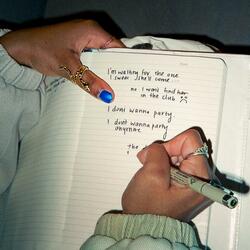 I'm waiting for the one
I swear shell come
no I wont find her
in the club
I dont wanna party
I dont wanna party
anymore
the